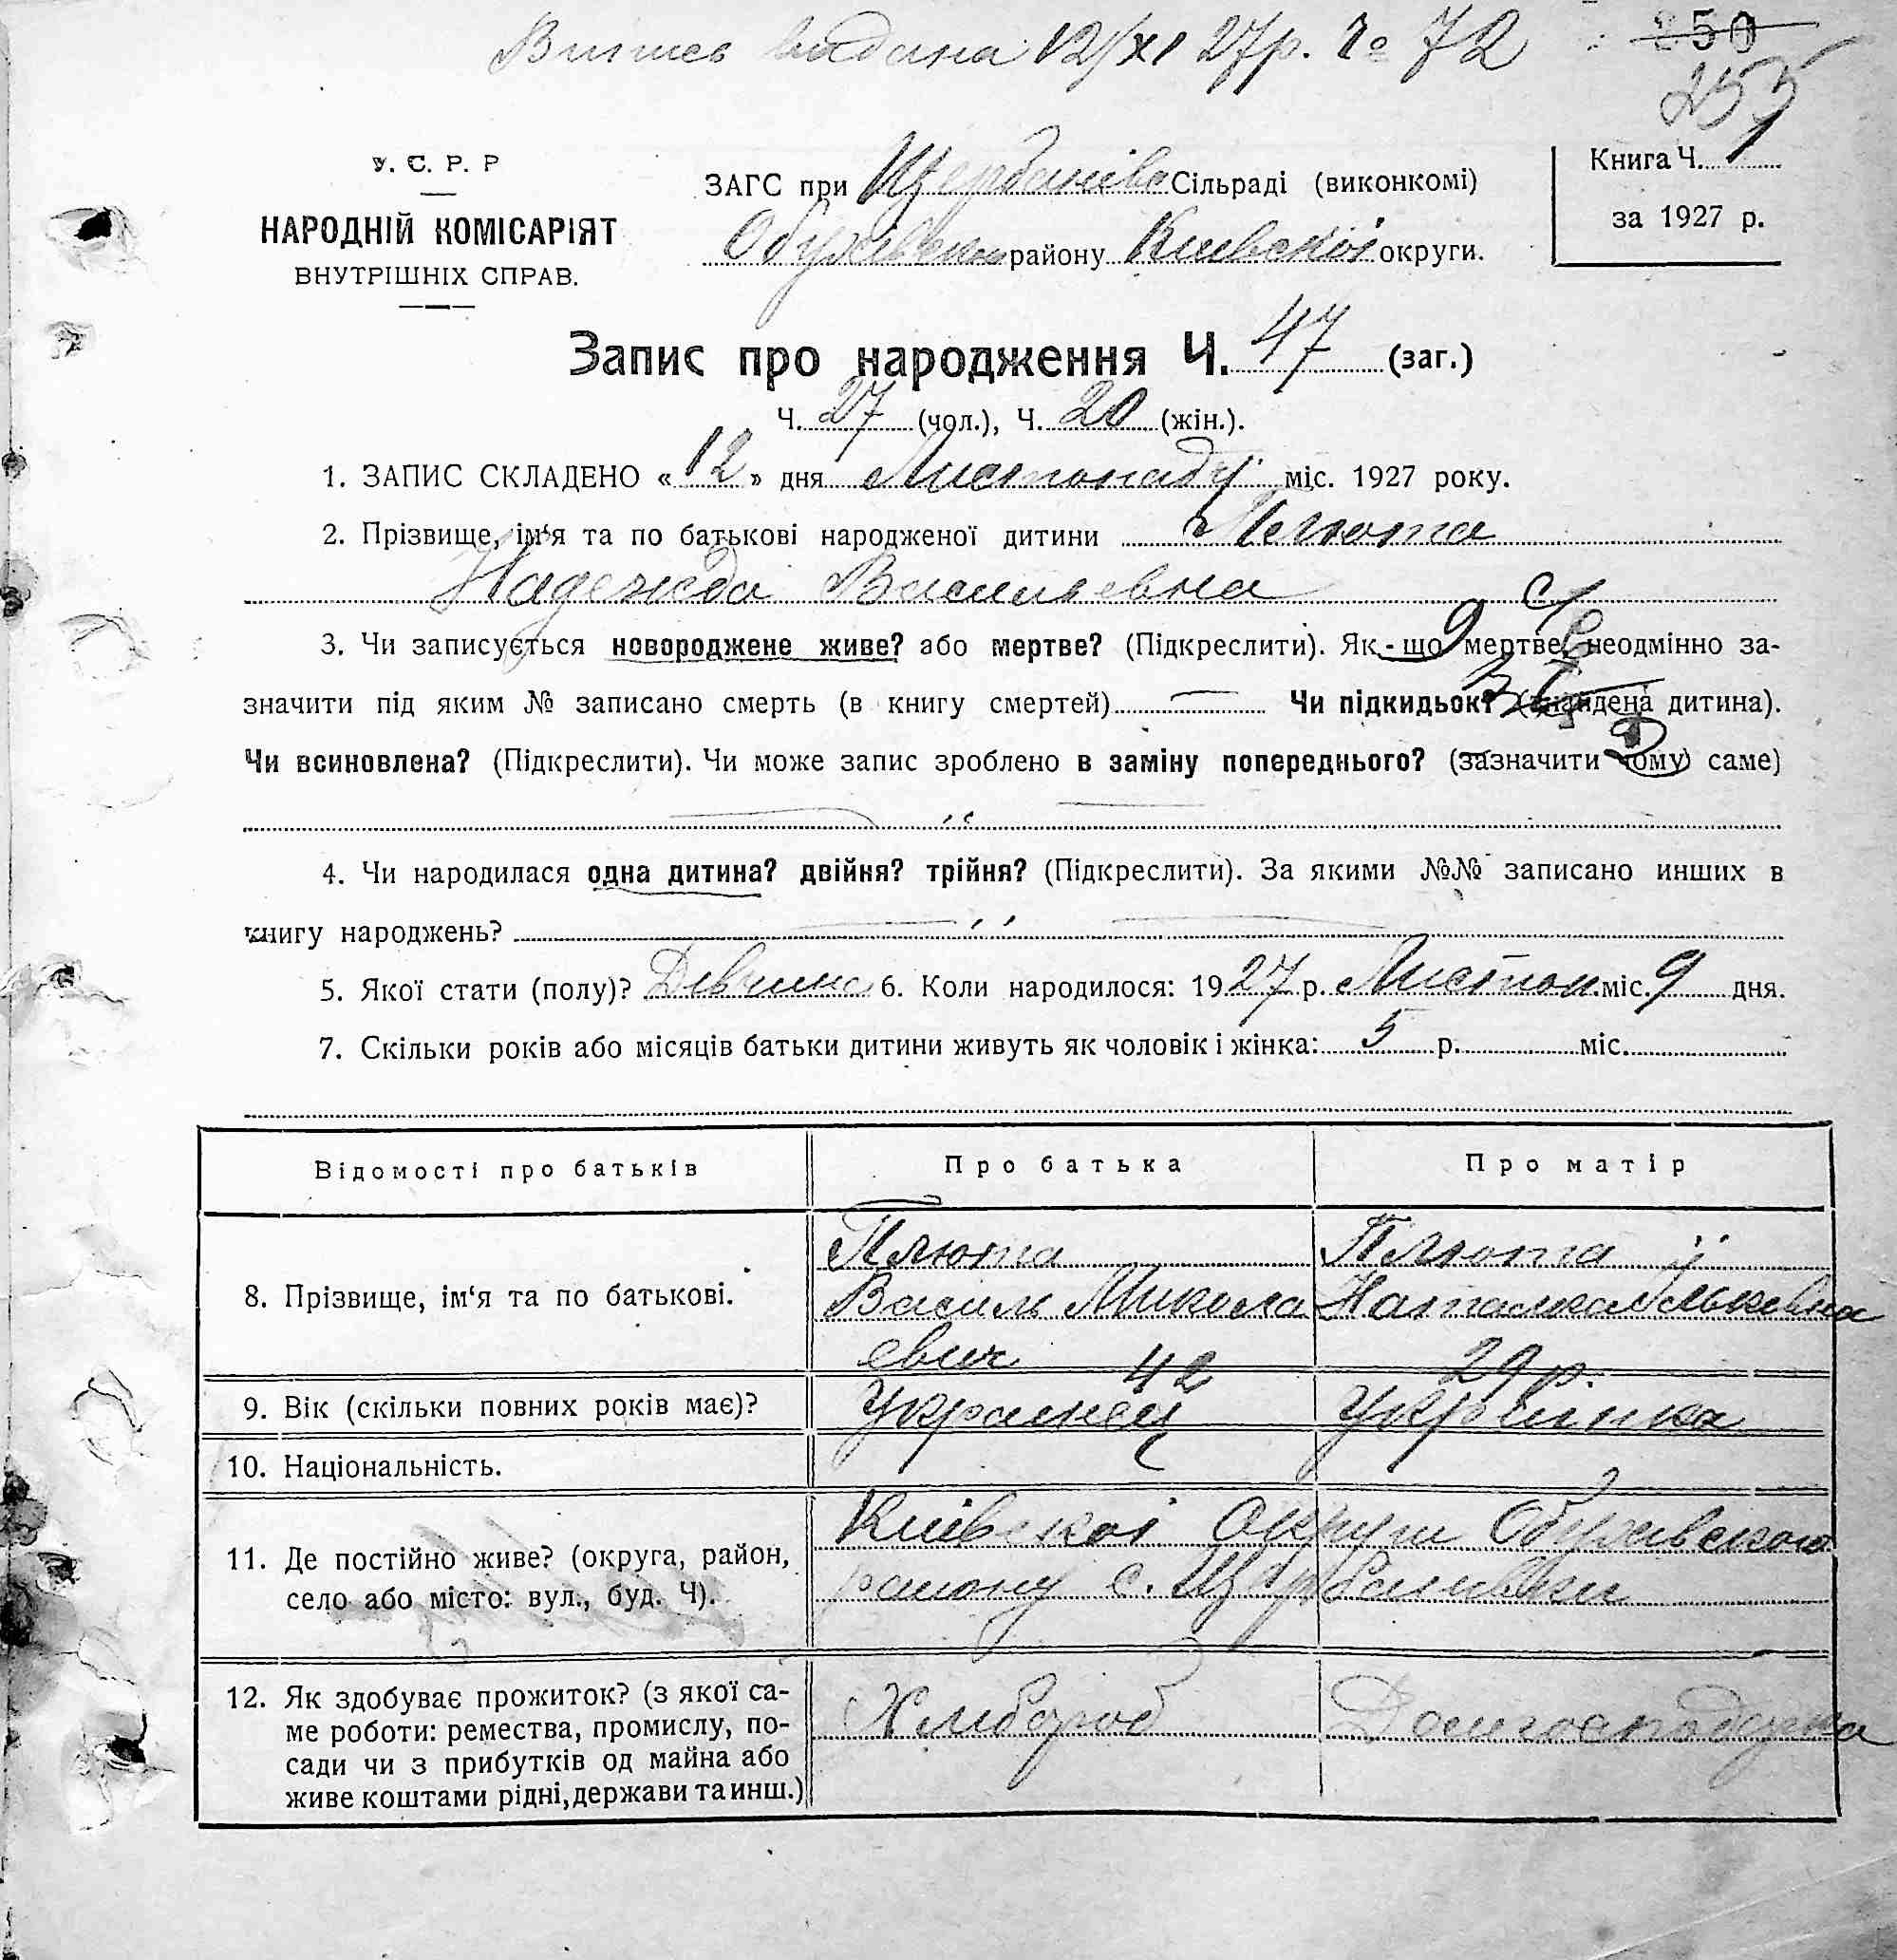 Випись видана 12/XI 27р. № 72
250
255
У. С. Р. Р
НАРОДНІЙ КОМІСАРІЯТ
ВНУТРІШНІХ СПРАВ.
ЗАГС при Щербанівс Сільраді (виконкомі)
Обухівськ району Київскоі округи.
Книга Ч.
за 1927 р.
Запис про народження Ч. 47 (заг.)
Ч. 27 (чол.), Ч. 20 (жін.).
1. ЗАПИС СКЛАДЕНО « 12 » дня Листопаду міс. 1927 року.
2. Прізвище, ім‘я та по батькові народженої дитини Плюта
Надежда Васильевна
3. Чи записується новороджене живе? або мертве? (Підкреслити). Як - що мертве, неодмінно за-
значити під яким № записано смерть (в книгу смертей) Чи підкидьок? (знайдена дитина).
Чи всиновлена? (Підкреслити). Чи може запис зроблено в заміну попереднього? (зазначити чому саме)
4. Чи народилася одна дитина? двійня? трійня? (Підкреслити). За якими №№ записано инших в
книгу народжень?
5. Якої стати (полу)? Дівчина 6. Коли народилося: 1927 р. Листоп. міс. 9 дня.
7. Скільки років або місяців батьки дитини живуть як чоловік і жінка: 5 р. міс.
Відомості про батьків Про батька Про матір
8. Прізвище, ім‘я та по батькові. Плюта Василь Миколаевич Плюта Наталка
9. Вік (скільки повних років має)? 42 29 р.
10. Національність. Украінец Украінка
11. Де постійно живе? (округа, район, Київскоі Округи Обухівского
село або місто: вул., буд. Ч). району с. Щербанівки
12. Як здобуває прожиток? (з якої са- Хлібороб Домгосподарка
ме роботи: ремества, промислу, по-
сади чи з прибутків од майна або
живе коштами рідні, держави та инш.)